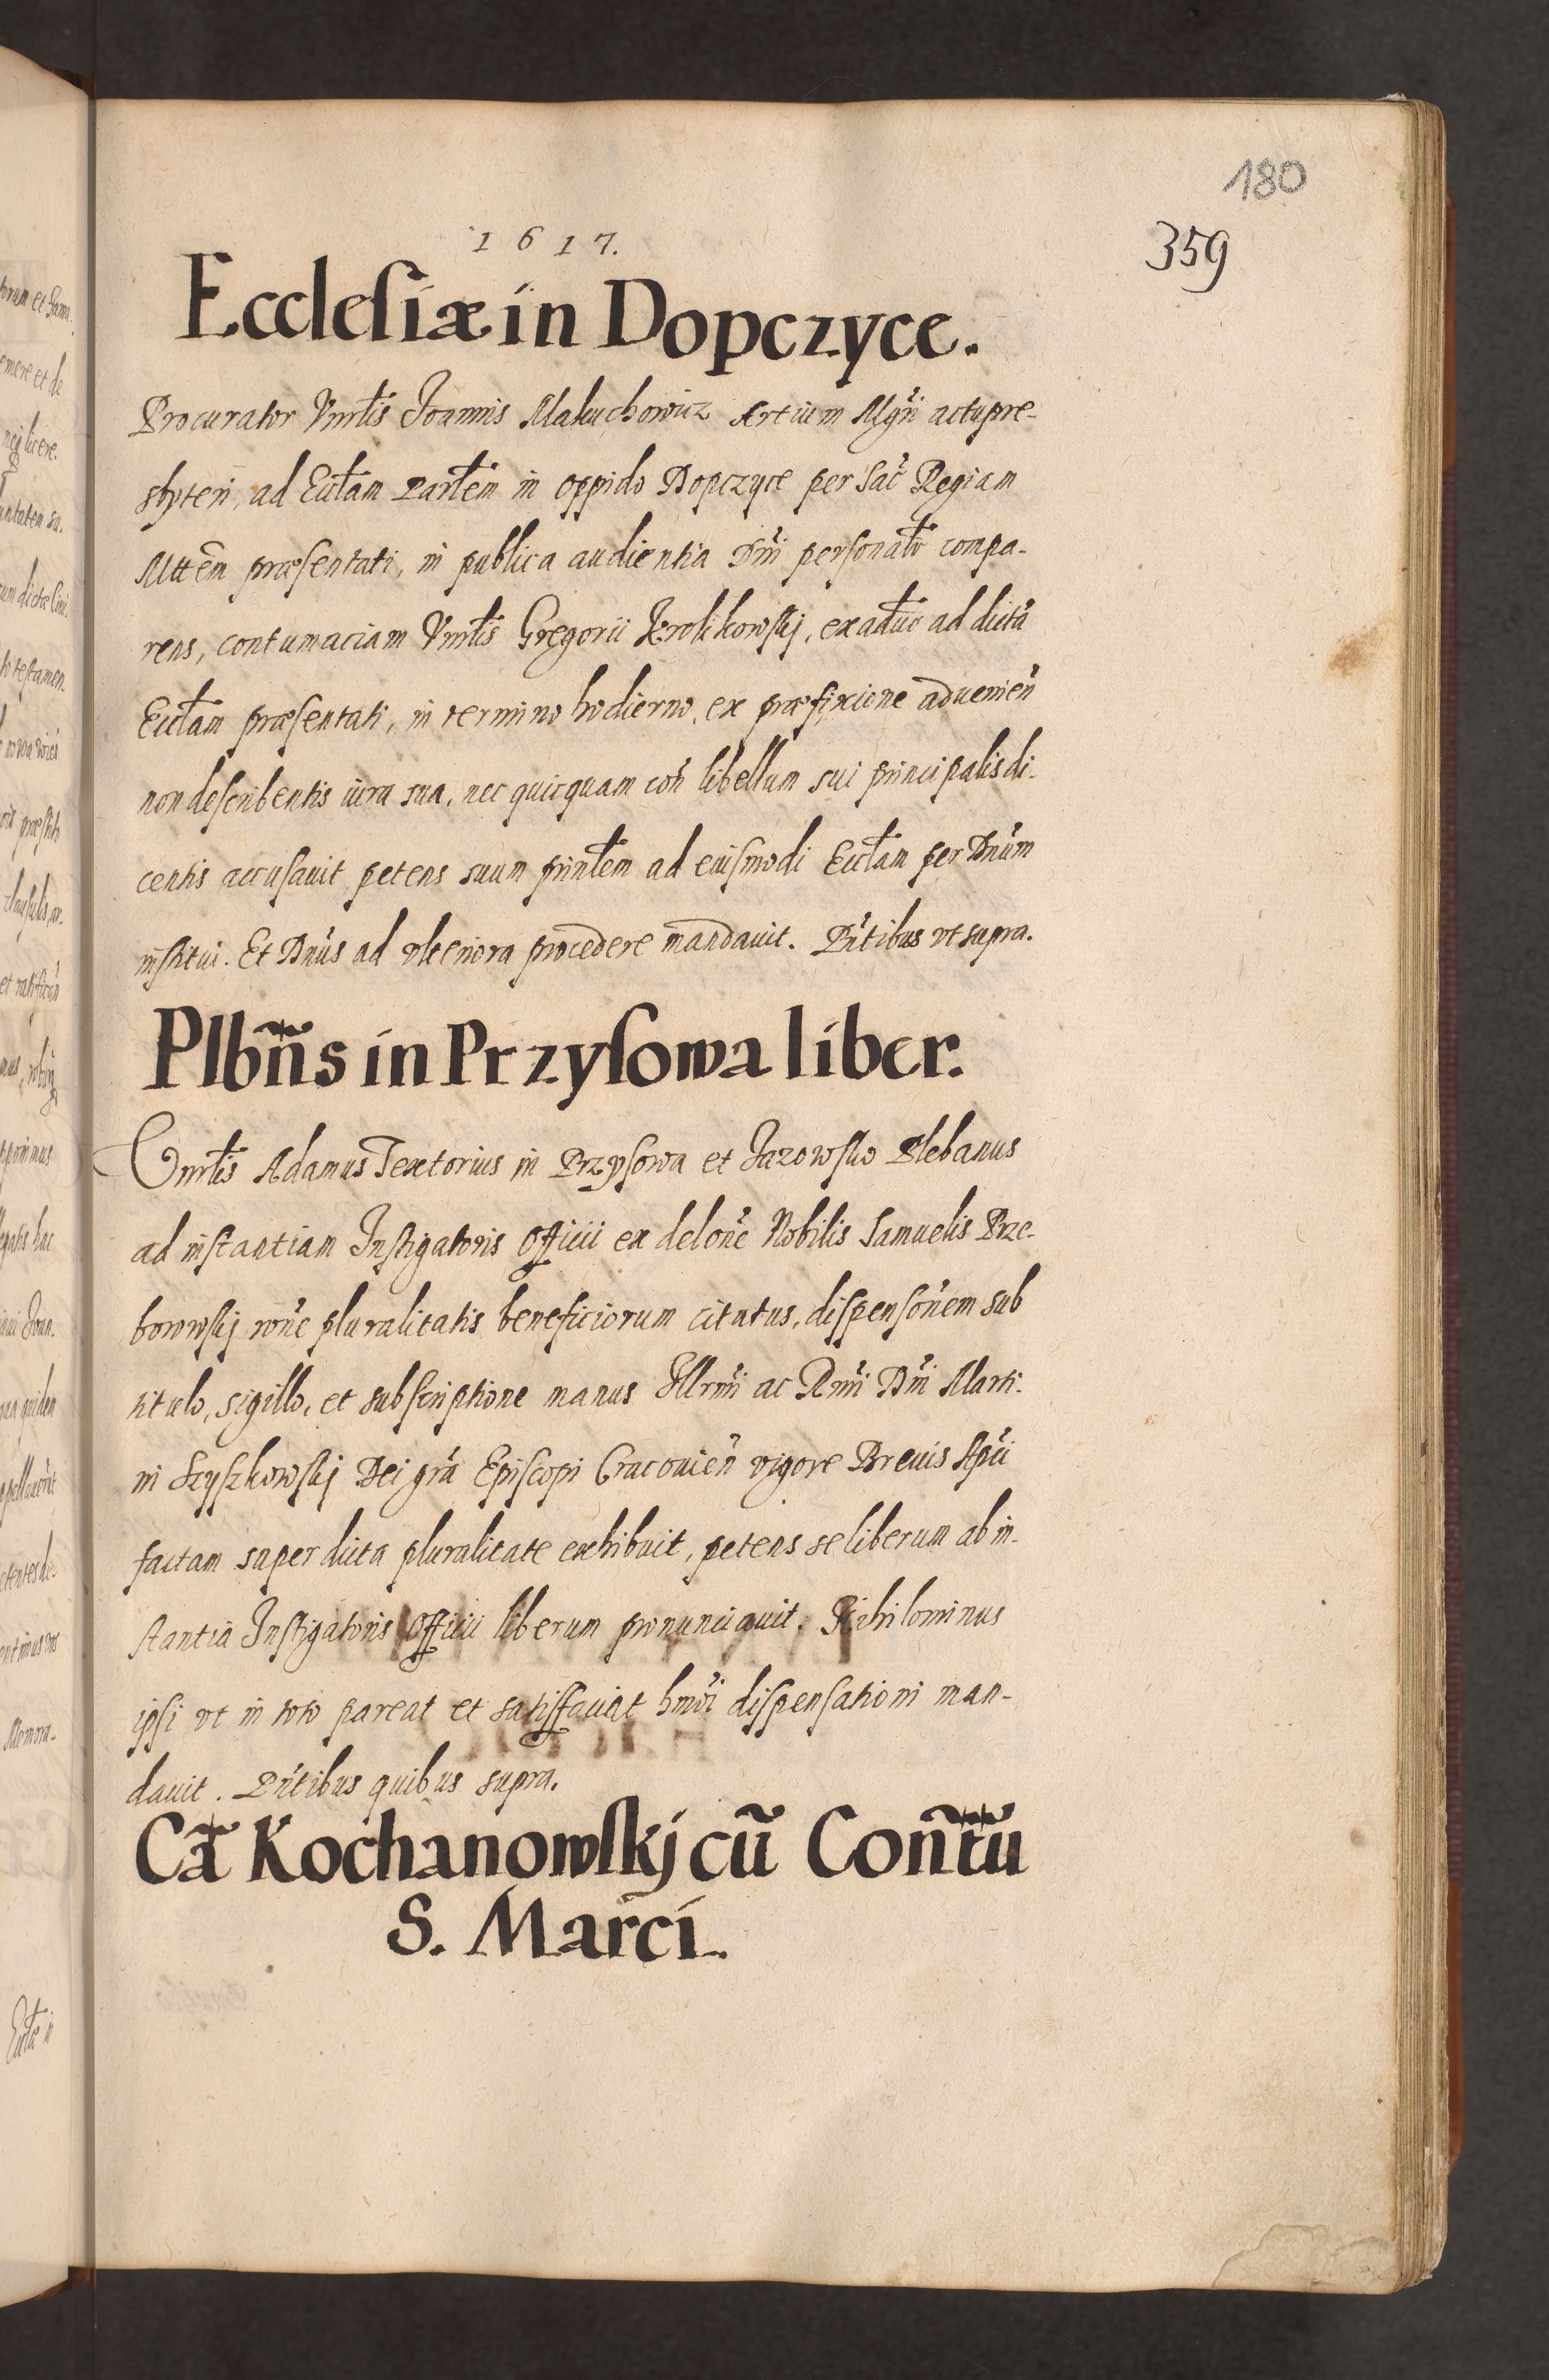 180
359
1617.
Ecclesiæ in Dopczyce.
Procurator Vnrlis Joannis Makuchowicz Artium Mgri actu pre-
sbyteri, ad Ecclam Parlem in oppido Dopczyce per Sac Regiam
Mttem præsentati, in publica audientia Dni personalr compa-
rens, contumaciam Vnrlis Gregorii Krolikowskj, ex aduo ad dicta
Ecclam præsentati, in termino hodierno, ex præfixione aduenien
non describentis iura sua, nec quicquam con libellum sui principalis di-
centis accusauit petens suum prinlem ad eiusmodi Ecclam per Dnum
institui. Et Dnus ad vlteriora procedere mandauit. Pntibus vt supra.
Plbñs in Przysowa liber.
Vnrlis Adamus Textorius in Przysowa et Jazowsko Plebanus
ad instantiam Instigatoris Officii ex delone Nobilis Samuelis Prze-
borowskj rone pluralitatis beneficiorum citatus, dispensonem sub
titulo, sigillo, et subscriptione manus Illrmi ac Rmi Dni Marti-
ni Szyszkowskj Dei gra Episcopi Cracouien vigore Breuis Apci
factam super dicta pluralitate exhibuit, petens se liberum ab in-
stantia Instigatoris Officii liberum pronunciauit. Nihilominus
ipsi vt in toto pareat et satisfaciat hmoi dispensationi man-
dauit. Pntibus quibus supra.
Cã Kochanowskj cũ Conñtũ
S. Marci.